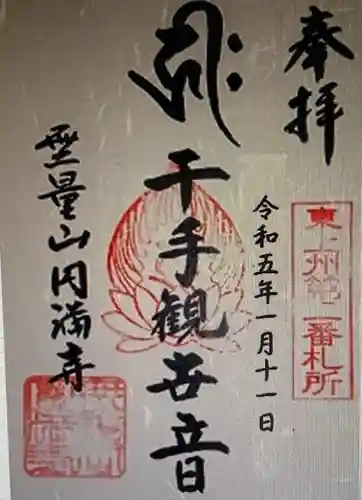 奉拝
東上州第二番札所
令和五年一月十一日
千手観世音
無量山円満寺